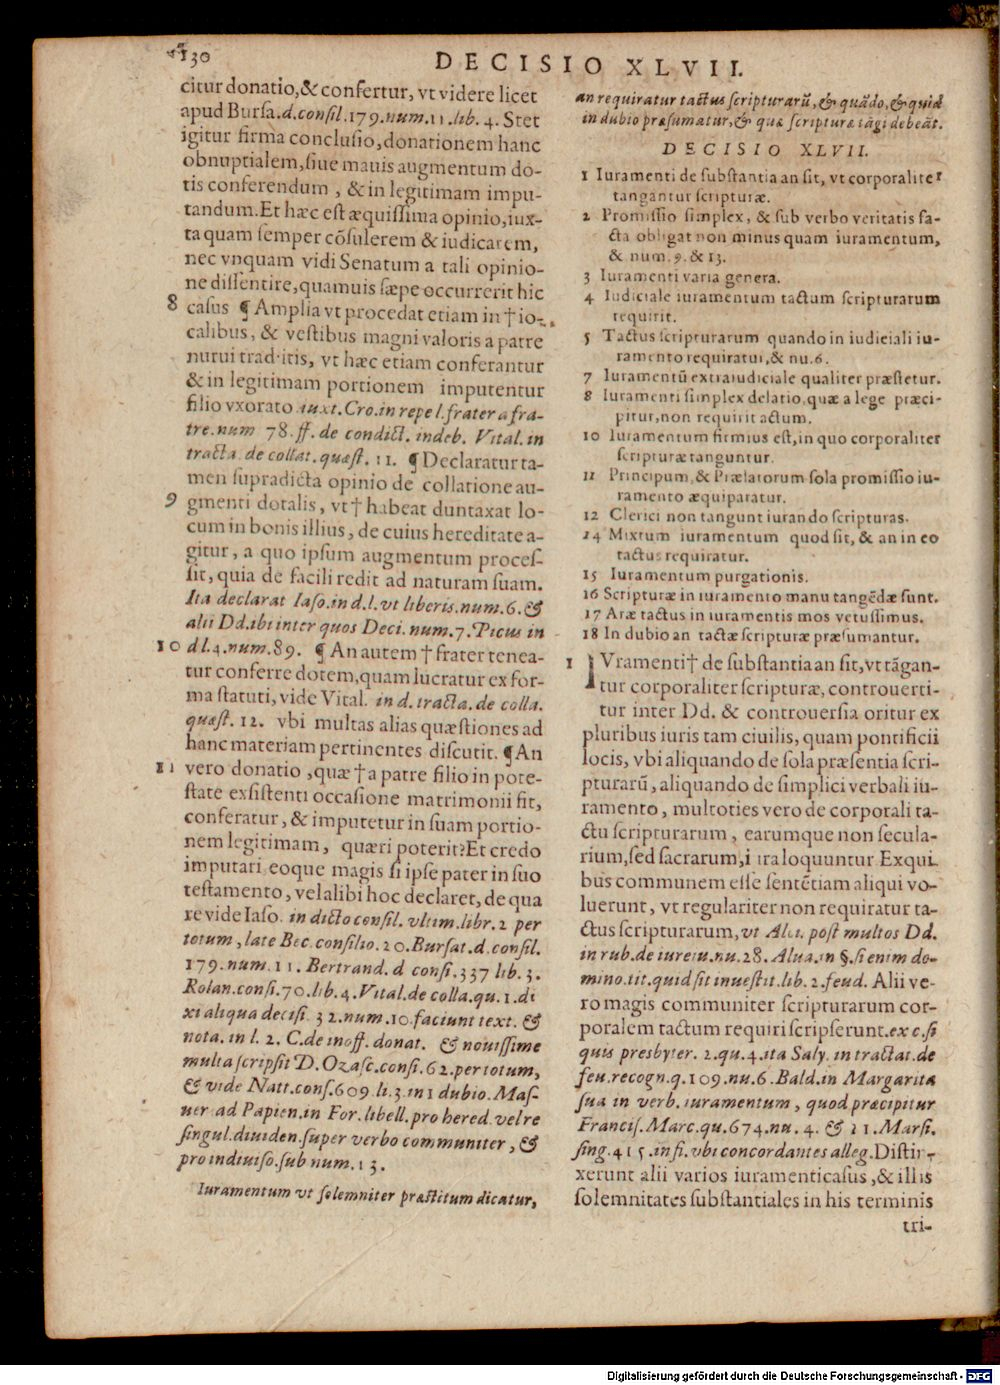 130
DECISIO XLVII.
citur donatio,& confertur, vt videre licet
apud Bursa.d.consil.179.num.11.lib. 4. Stet
igitur firma conclusio,donationem hanc
obnuptialem,siue mauis augmentum do-
tis conferendum , & in legitimam impu-
tandum.Et hæc est æquissima opinio,iux-
ta quam semper cõsulerem & iudicarem,
nec vnquam vidi Senatum a tali opinio-
ne dissentire,quamuis sæpe occurrerit hic
8 casus ¶ Amplia vt procedat etiam in † io-
calibus, & vestibus magni valoris a patre
nurui traditis, vt hæc etiam conferantur
& in legitimam portionem imputentur
filio vxorato iuxt.Cro.in repe l.frater a fra-
tre.num 78.ff.de condict. indeb. Vital.in
tracta de collat.quæst. 11. ¶ Declaratur ta-
men supradicta opinio de collatione au-
9 gmenti dotalis, vt † habeat duntaxat lo-
cum in bonis illius, de cuius hereditate a-
gitur, a quo ipsum augmentum proces-
sit, quia de facili redit ad naturam suam.
Ita declarat Iaso.in d.l.vt liberis.num.6.&
alii Dd.ibi inter quos Deci.num.7.Picus in
10 d l.4.num.89. ¶ An autem † frater tenea-
tur conferre dotem,quam lucratur ex for-
ma statuti, vide Vital. in d.tracta.de colla.
quæst. 12. vbi multas alias quæstiones ad
hanc materiam pertinentes discutit. ¶ An
11 vero donatio ,quæ † a patre filio in pote-
state existenti occasione matrimonii fit,
conferatur , & imputetur in suam portio-
nem legitimam, quæri poterit?Et credo
imputari eoque magis si ipse pater in suo
testamento, vel alibi hoc declaret, de qua
re vide Iaso. in dicto consil. vltim.libr.2 per
totum , late Bec.consilio.20.Bursat.d.consil.
179.num.11. Bertrand. d consi.337 lib. 3.
Rolan.consi.70.lib.4.Vital.de colla.qu.1.di
xi aliqua decisi. 32.num.10.faciunt text. &
nota. in l. 2. C.de inoff. donat. & nouissime
multa scripsit D.Ozasc.consi.62.per totum,
& vide Natt.cons.609 li.3.in 1 dubio.Mas-
uer ad Papien.in For.libell.pro hered.vel re
singul.diuiden.super verbo communiter , &
pro indiuiso.sub num.13.
Iuramentum vt solemniter præstitum dicatur,
an requiratur tactus scripturarũ,& quãdo,& quid
in dubio præsumatur,& quæ scripturæ tãgi debeãt.
DECISIO XLVII.
1 Iuramenti de substantia an sit, vt corporaliter
tangantur scripturæ.
2 Promissio simplex, & sub verbo veritatis fa-
cta obligat non minus quam iuramentum,
& num. 9. & 13.
3 Iuramenti varia genera.
4 Iudiciale iuramentum tactum scripturarum
requirit.
5 Tactus scripturarum quando in iudiciali iu-
ramento requiratur,& nu.6.
7 Iuramentũ extraiudiciale qualiter præstetur.
8 Iuramenti simplex delatio,quæ a lege præci-
pitur,non requirit actum.
10 Iuramentum firmius est,in quo corporaliter
scripturæ tanguntur.
11 Principum, & Prælatorum sola promissio iu-
ramento æquiparatur.
12 Clerici non tangunt iurando scripturas.
14 Mixtum iuramentum quod sit, & an in eo
tactus requiratur.
15 Iuramentum purgationis.
16 Scripturæ in iuramento manu tangẽdæ sunt.
17 Aræ tactus in iuramentis mos vetussimus.
18 In dubio an tactæ scripturæ præsumantur.
1 IVramenti † de substantia an sit,vt tãgan-
tur corporaliter scripturæ, controuerti-
tur inter Dd. & controuersia oritur ex
pluribus iuris tam ciuilis, quam pontificii
locis, vbi aliquando de sola præsentia scri-
pturarũ, aliquando de simplici verbali iu-
ramento , multoties vero de corporali ta-
ctu scripturarum , earumque non secula-
rium,sed sacrarum,iura loquuntur Exqui
bus communem esse sentẽtiam aliqui vo-
luerunt, vt regulariter non requiratur ta-
ctus scripturarum,vt Alci. post multos Dd.
in rub.de iureiu.nu.28. Alua.in §.si enim do-
mino.tit.quid sit inuestit.lib.2.feud. Alii ve-
ro magis communiter scripturarum cor-
poralem tactum requiri scripserunt.ex c.si
quis presbyter. 2.qu.4.ita Saly. in tractat.de
feu.recogn.q.109.nu.6. Bald.in Margarita
sua in verb. iuramentum , quod præcipitur
Francis.Marc.qu.674.nu. 4. & 11.Marsi.
sing.415.in fi.vbi concordantes alleg.Distin-
xerunt alii varios iuramenti casus ,& illis
solemnitates substantiales in his terminis
tri-
Digitalisierung gefördert durch die Deutsche Forschungsgemeinschaft - DFG